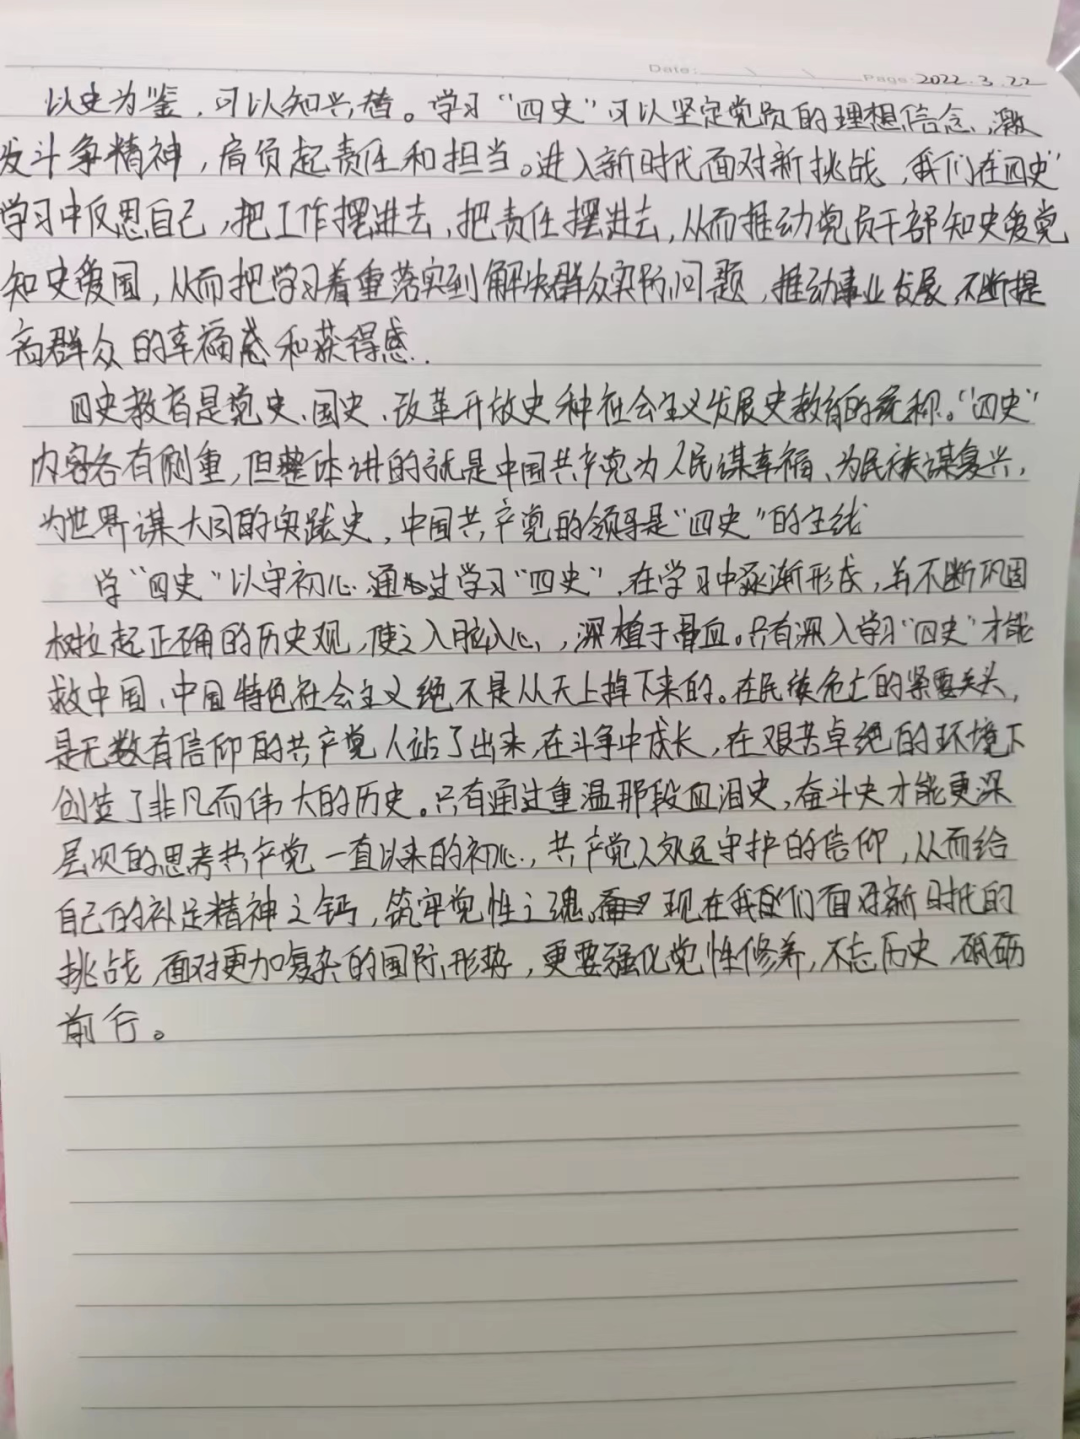 Date: Page: 2022.3.22
以史为鉴，可以知兴替。学习“四史”可以坚定党员的理想信念，激
发斗争精神，肩负起责任和担当。进入新时代面对新挑战，我们在四史
学习中反思自己，把工作摆进去，把责任摆进去，从而推动党员干部知史爱党
知史爱国，从而把学习着重落实到解决群众实际问题，推动事业发展，不断提
高群众的幸福感和获得感．
四史教育是党史、国史、改革开放史种社会主义发展史教育的统称。“四史”
内容各有侧重，但整体讲的就是中国共产党为人民谋幸福、为民族谋复兴，
为世界谋大同的实践史，中国共产党的领导是“四史”的主线
学“四史”以守初心，通过学习“四史”，在学习中逐渐形成，并不断巩固
树立起正确的历史观，使之入脑入心，深植于骨血。只有深入学习“四史”才能
救中国、中国特色社会主义绝不是从天上掉下来的。在民族危亡的紧要关头，
是无数有信仰的共产党人站了出来，在斗争中成长，在艰苦卓绝的环境下
创造了非凡而伟大的历史。只有通过重温那段血泪史，奋斗史才能更深
层次的思考共产党一直以来的初心，共产党人永远守护的信仰，从而给
自己的补足精神之钙，筑牢党性之魂。现在我们面对新时代的
挑战，面对更加复杂的国际形势，更要强化党性修养，不忘历史，砥砺
前行。